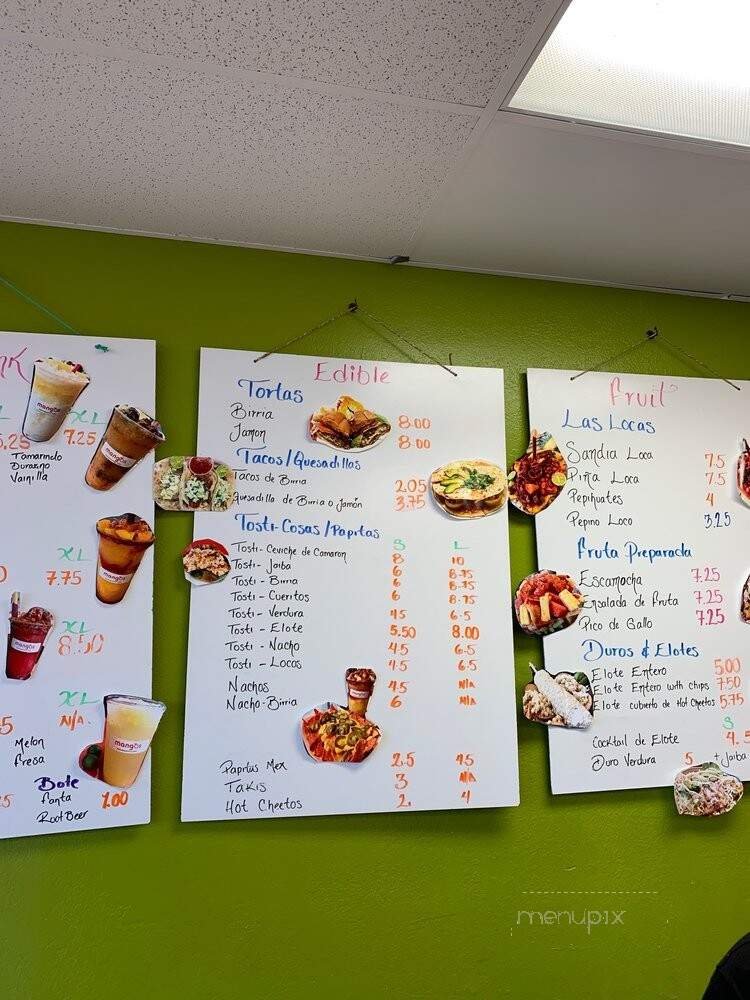 XL
5.25 7.25
Tamarindo
Durazno
Vainilla
mangOs
mangOs
XL
7.75
mangOs
XL
8.50
XL
N/A.
mangOs
Melon
Fresa
Bote
Fanta 1.00
Root Beer
Edible
Tortas
Birria 8.00
Jamon 8.00
Tacos/Quesadillas
Tacos de Birria 2.05
Quesadilla de Birria o Jamón 3.75
Tosti-Cosas/Papitas
S L
Tosti-Ceviche de Camaron 8 10
Tosti-Jaiba 6 8.75
Tosti-Birria 6 8.75
Tosti-Cueritos 6 8.75
Tosti-Verdura 4.5 6.5
Tosti-Elote 5.50 8.00
Tosti-Nacho 4.5 6.5
Tosti-Locos 4.5 6.5
Nachos 4.5 N/A
Nacho-Birria 6 N/A
Papitas Mex 2.5 4.5
Takis 3 N/A
Hot Cheetos 2 4
Fruit
Las Locas
Sandia Loca 7.5
Piña Loca 7.5
Pepihuates 4
Pepino Loco 3.25
Fruta Preparada
Escamocha 7.25
Ensalada de Fruta 7.25
Pico de Gallo 7.25
Duros & Elotes
Elote Entero 5.00
Elote Entero with chips 7.50
Elote cubierto de Hot Cheetos 5.75
S
Cocktail de Elote 4.5
Duro Verdura 5 +Jaiba
menupix